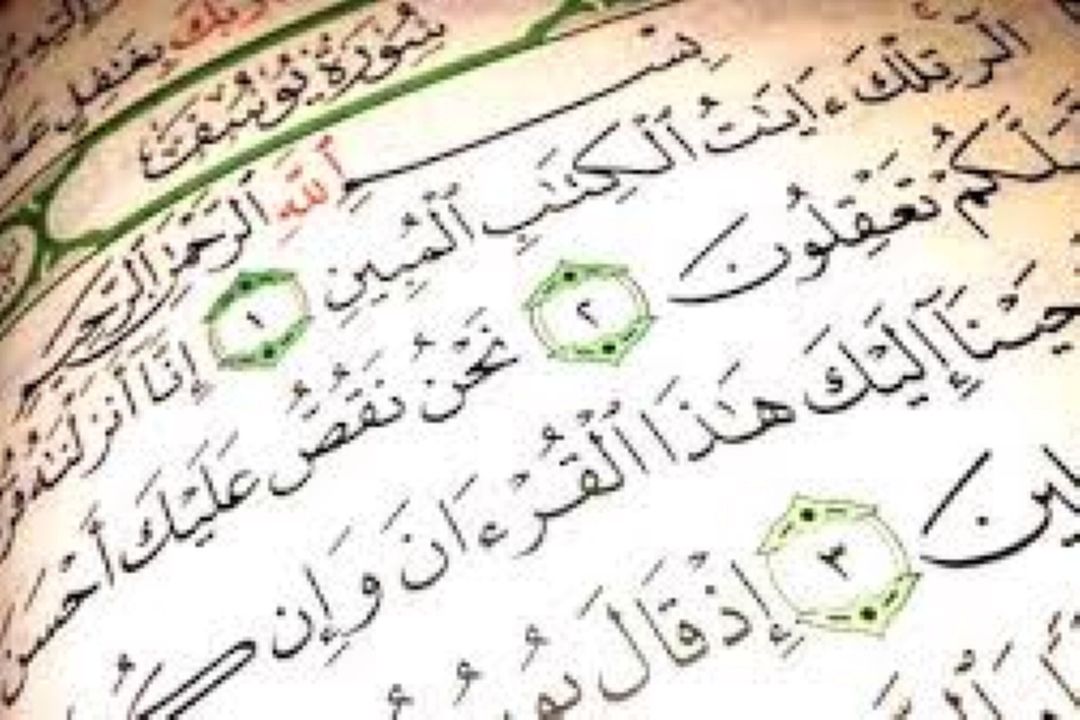 ربك بغفل عما
سُورَةُ يُوسُفَ
بِسْمِ ٱللَّهِ ٱلرَّحْمَٰنِ ٱلرَّحِيمِ
الٓر تِلْكَ ءَايَٰتُ ٱلْكِتَٰبِ ٱلْمُبِينِ ١ إِنَّآ أَنزَلْنَٰهُ
لَّعَلَّكُمْ تَعْقِلُونَ ٢ نَحْنُ نَقُصُّ عَلَيْكَ أَحْسَنَ
إِلَيْكَ هَٰذَا ٱلْقُرْءَانَ وَإِن
٣ إِذْ قَالَ